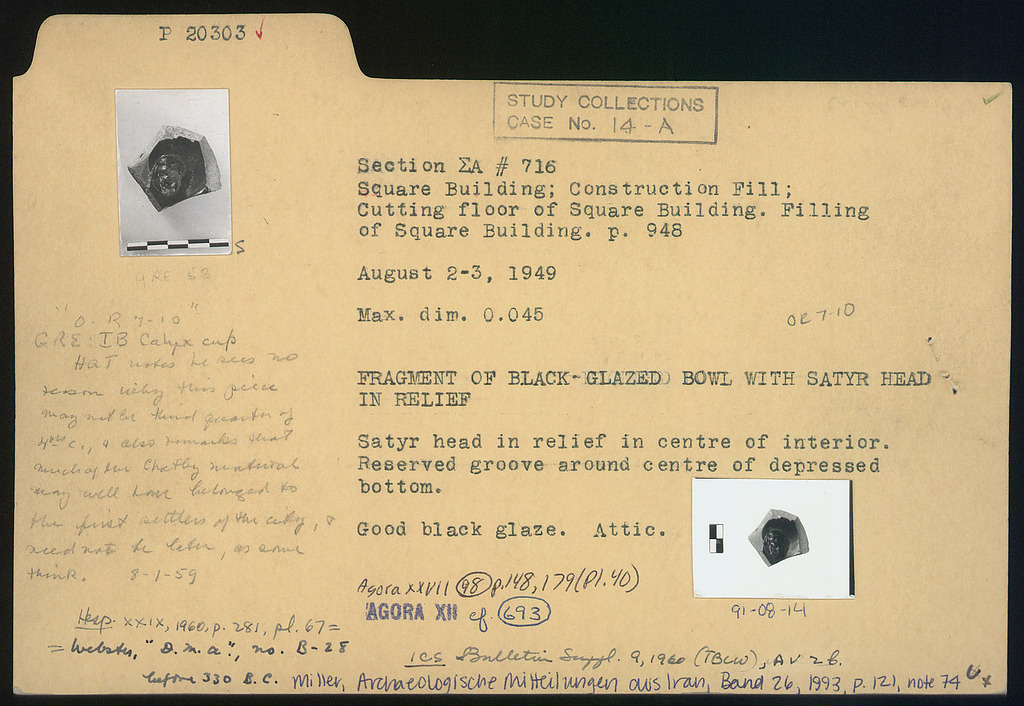 P 20303 ✓
STUDY COLLECTIONS
CASE No. 14-A
Section ΣΑ # 716
Square Building; Construction Fill;
Cutting floor of Square Building. Filling
of Square Building. p. 948
August 2-3, 1949
Max. dim. 0.045
OR 7-10
FRAGMENT OF BLACK-GLAZED BOWL WITH SATYR HEAD
IN RELIEF
Satyr head in relief in centre of interior.
Reserved groove around centre of depressed
bottom.
Good black glaze. Attic.
S
GRE 53
"O-R 7-10"
GRE: IB Calyx cup
HAT notes he sees no
reason why this piece
may not be third quarter of
4th c., & also remarks that
much of the Chatby material
may well have belonged to
the first settlers of the city, &
need not be later, as some
think. 8-1-59
91-08-14
Agora XXVII 98 p.148, 179 (Pl. 40)
AGORA XII cf. 693
Hesp. XXIX, 1960, p. 281, pl. 67 =
= Webster, "D.M.a", no. B-28
before 330 B.C.
ICS Bulletin Suppl. 9, 1960 (TBLW), AV 26.
Miller, Archaeologische Mitteilungen aus Iran, Band 26, 1993, p. 121, note 74